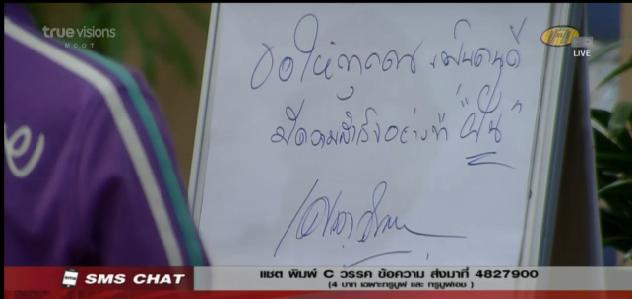 true visions
MCOT
LIVE
ขอให้ทุกคน เป็นคนดี
มีความสำเร็จอย่างที่ "ฝัน"
SMS CHAT
แชต พิมพ์ C วรรค ข้อความ ส่งมาที่ 4827900
(4 บาท เฉพาะทรูมูฟ และ ทรูมูฟเอช )